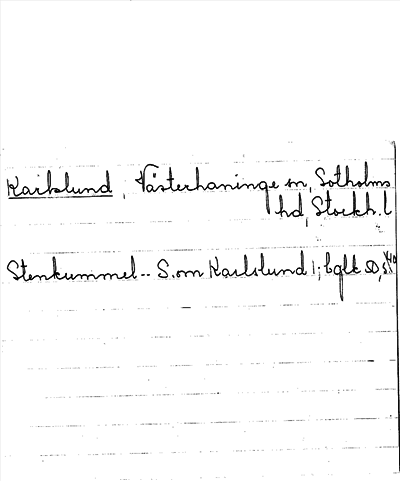 Karlslund, Västerhaninge sn, Sotholms
hd, Stockh. l
Stenkummel -- S. om Karlslund 1; bglt SO, s.